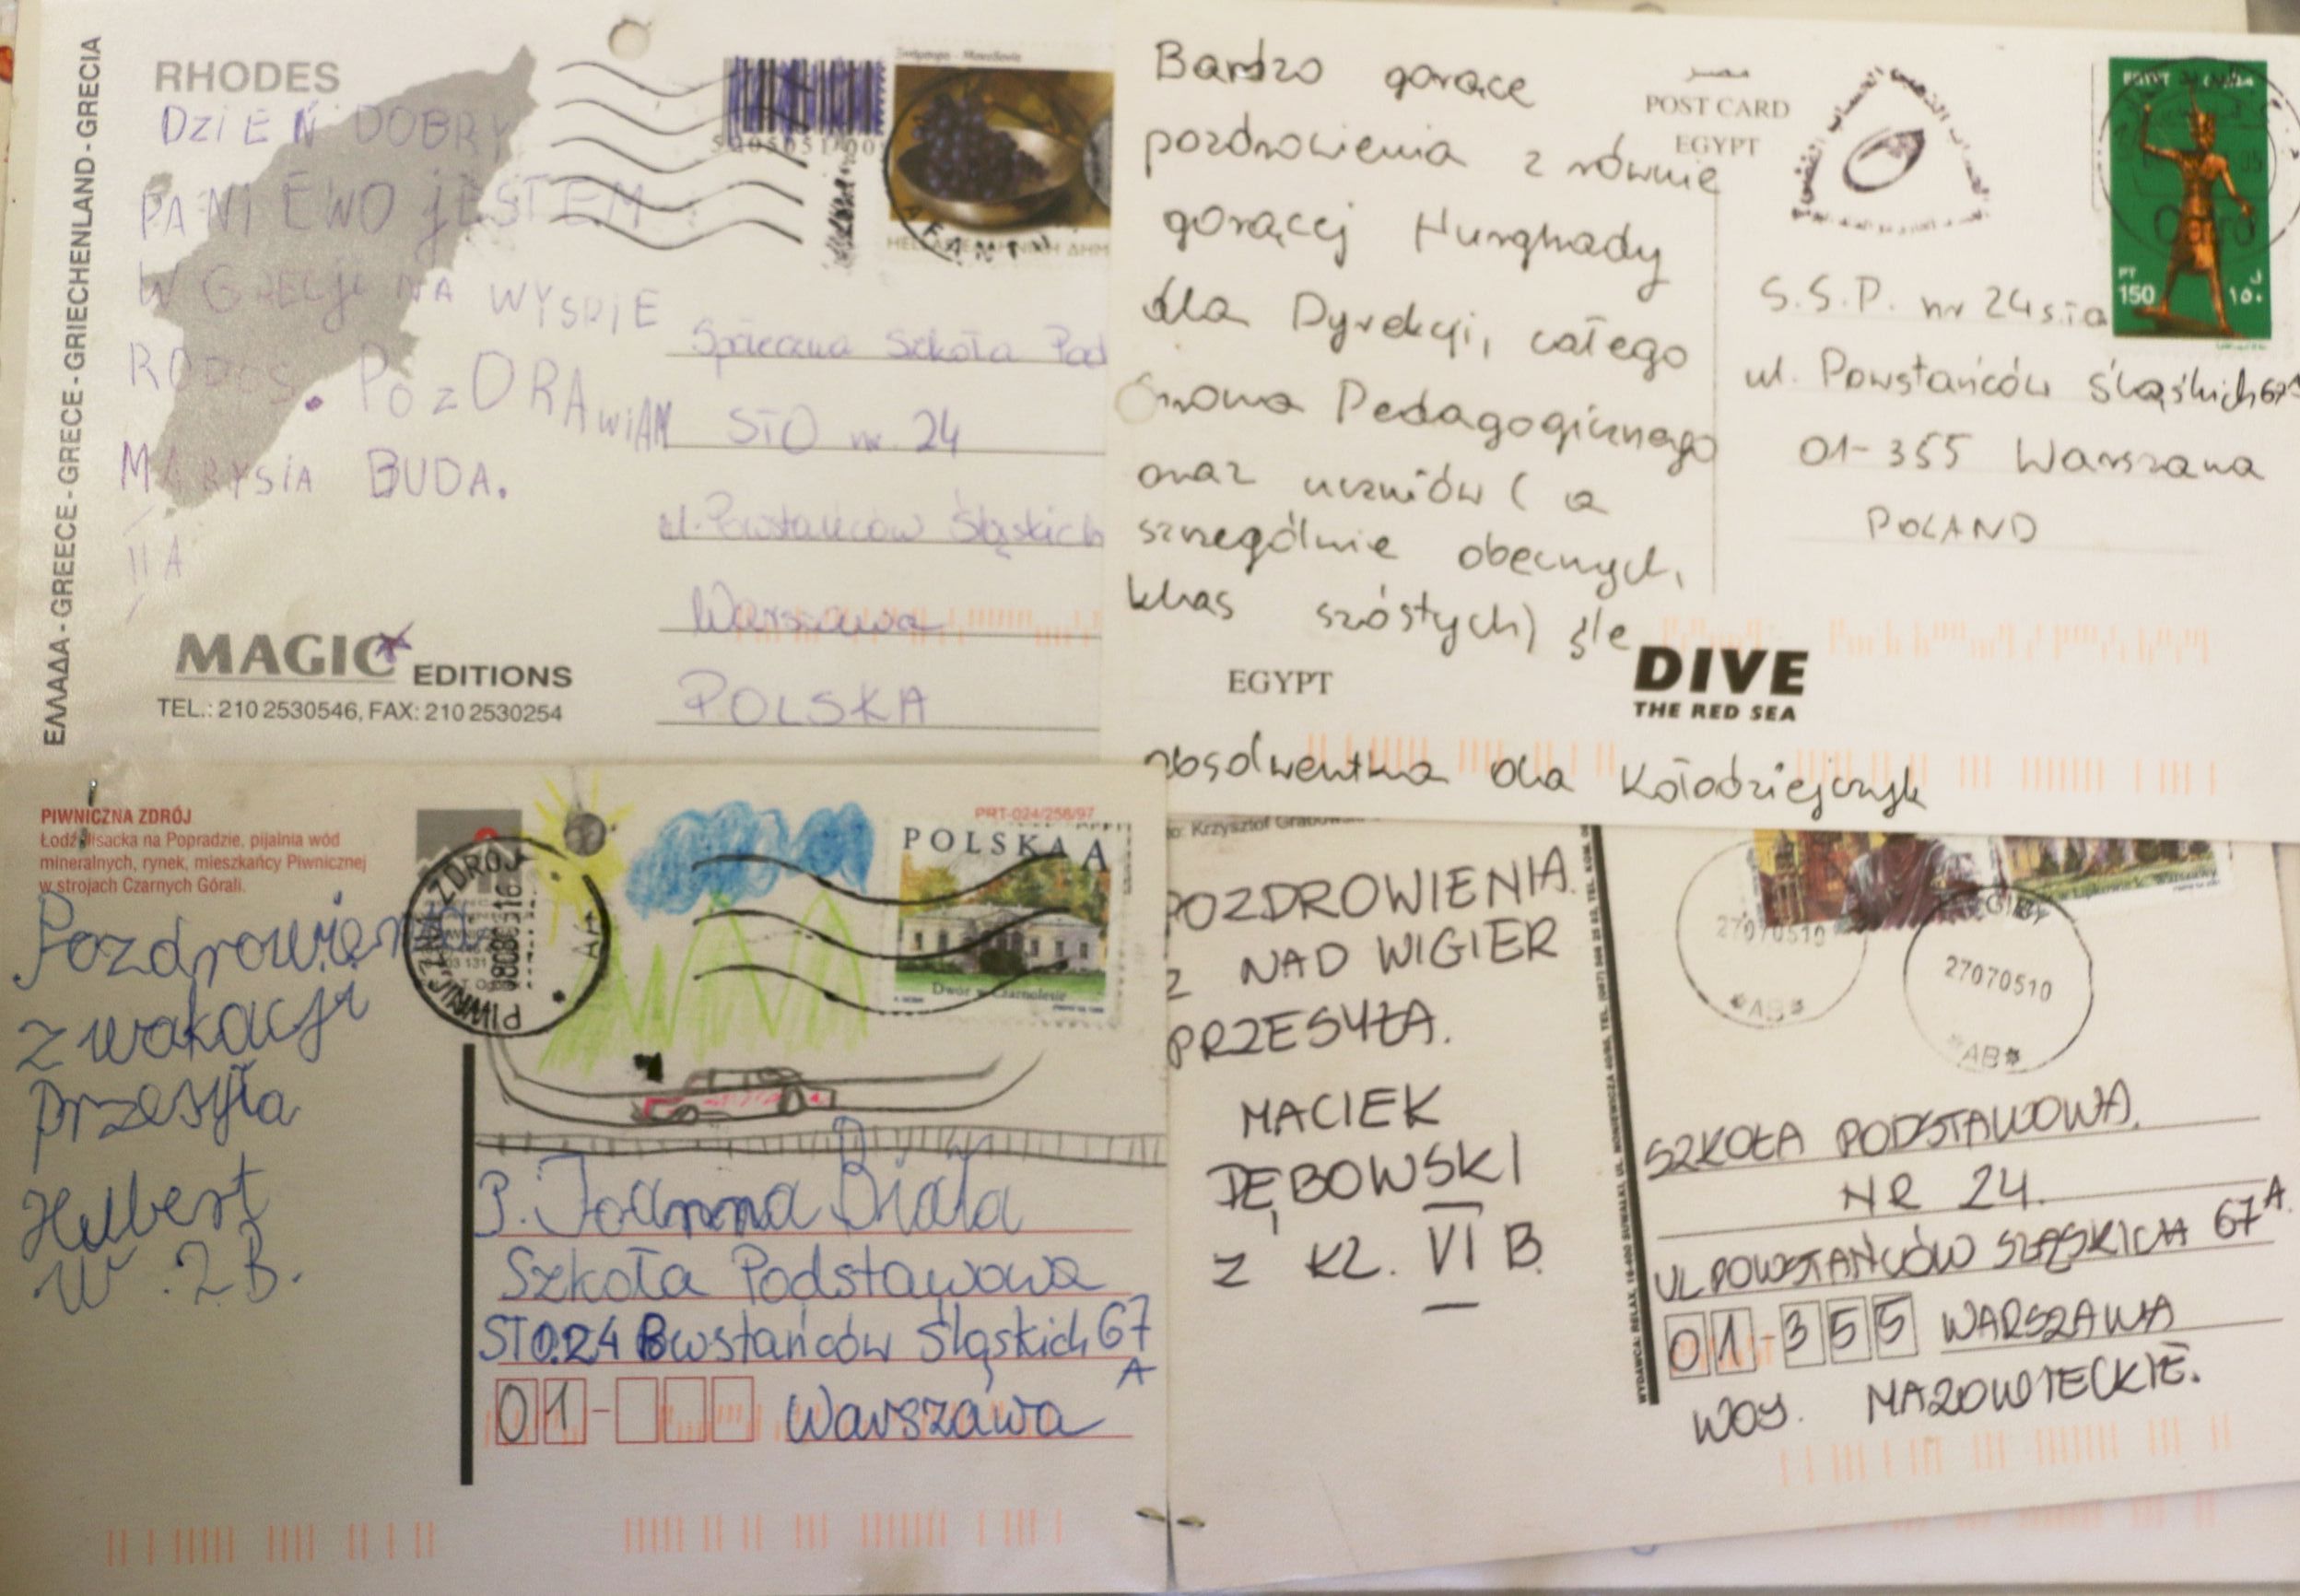 ΕΛΛΑΔΑ - GREECE - GRECE - GRIECHENLAND - GRECIA
RHODES
DZIEŃ DOBRY
PANI EWO JESTEM
W GRECJI NA WYSPIE
RODOS. POZDRAWIAM
MARYSIA BUDA.
II A
MAGIC EDITIONS
TEL.: 210 2530546, FAX: 210 2530254
Społeczna Szkoła Pod
STO nr. 24
ul. Powstańców Śląskich
Warszawa
POLSKA
Bardzo gorące
pozdrowienia z równie
gorącej Hurghady
dla Dyrekcji, całego
Grona Pedagogicznego
oraz uczniów ( a
szczególnie obecnych,
klas szóstych) śle
absolwentka Ola Kołodziejczyk
POST CARD
EGYPT
PT
150
S.S.P. nr 24 sto
ul. Powstańców Śląskich 67A
01-355 Warszawa
POLAND
EGYPT
DIVE
THE RED SEA
PIWNICZNA ZDRÓJ
Łodź flisacka na Popradzie, pijalnia wód
mineralnych, rynek, mieszkańcy Piwnicznej
w strojach Czarnych Górali.
Pozdrowienia
z wakacji
przesyła
Hubert
W 2B.
PRT-024/256/97
POLSKA A
Dwór w Czarnolesie
P. Joanna Biała
Szkoła Podstawowa
STO.24 Powstańców Śląskich 67
A
01- Warszawa
POZDROWIENIA
Z NAD WIGIER
PRZESYŁA.
MACIEK
DĘBOWSKI
Z KL. VI B.
27070510
AB
27070510
AB
SZKOŁA PODSTAWOWA
NR 24.
UL POWSTAŃCÓW SLĄSKICH 67A.
01-355 WARSZAWA
WOJ. MAZOWIECKIE.